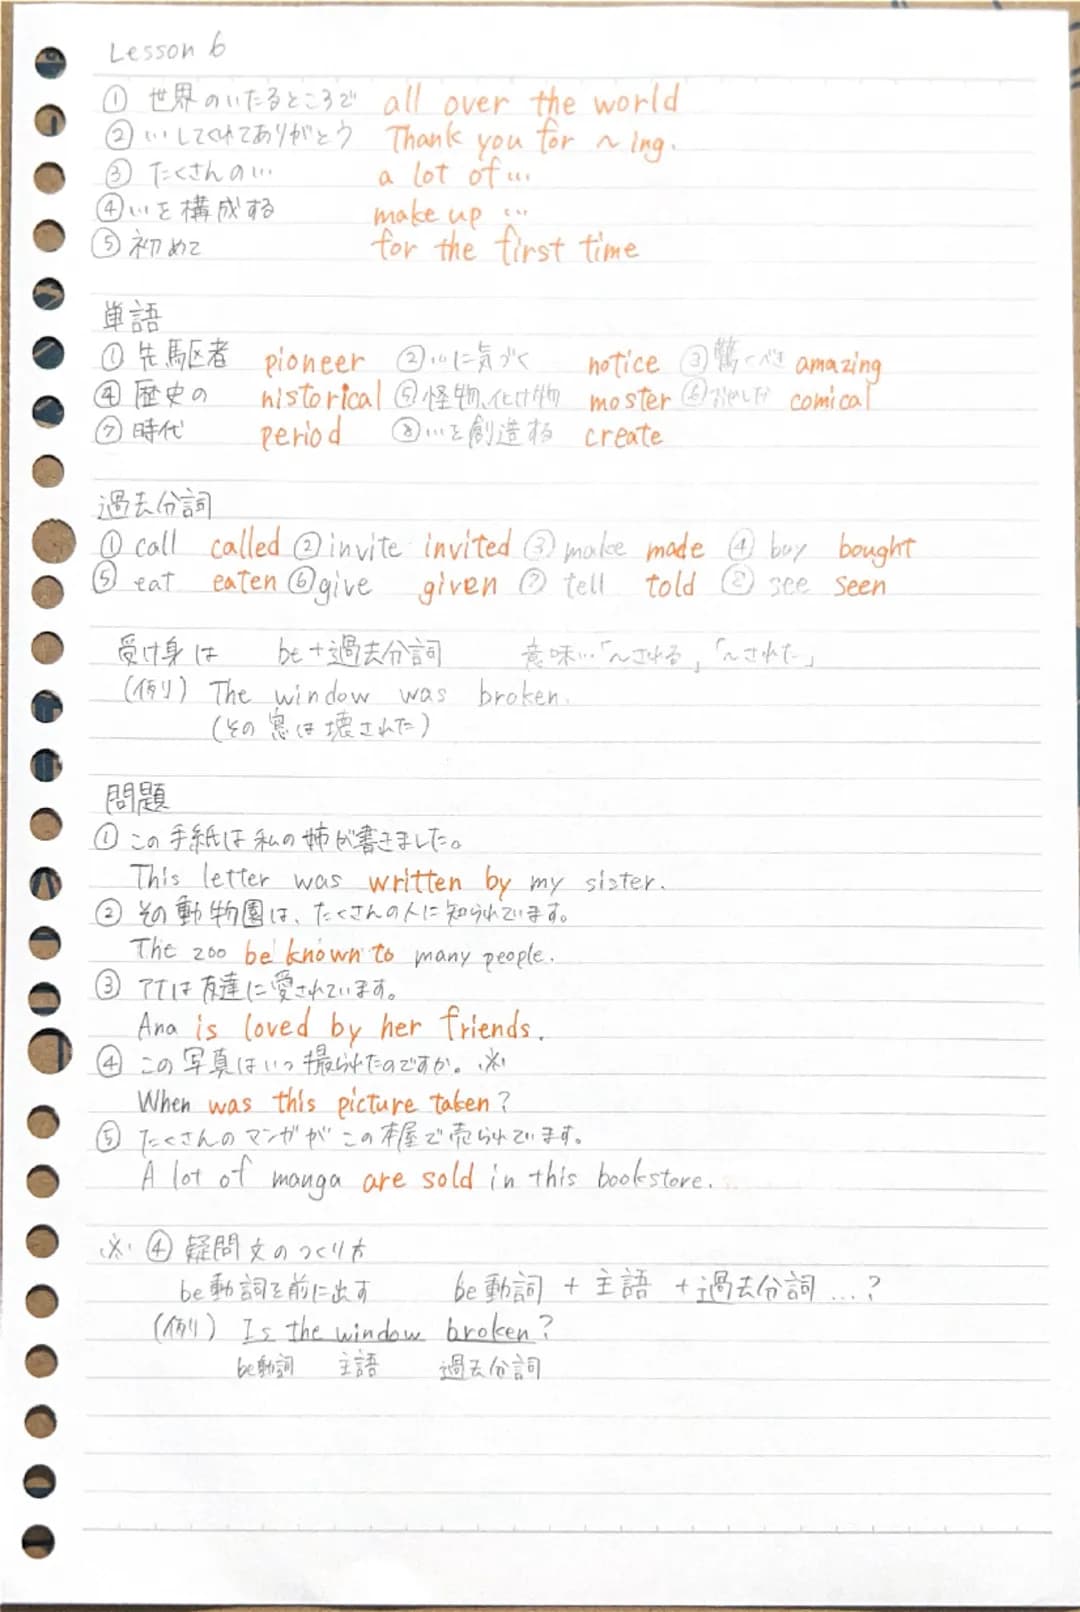 Lesson 6
① 世界のいたるところで all over the world
② …してくれてありがとう Thank you for ~ing.
③ たくさんの… a lot of…
④ …を構成する make up …
⑤ 初めて for the first time
単語
① 先駆者 pioneer ② …に気づく notice ③ 驚くべき amazing
④ 歴史の historical ⑤ 怪物、化け物 moster ⑥ おかしな comical
⑦ 時代 period ⑧ …を創造する create
過去分詞
① call called ② invite invited ③ make made ④ buy bought
⑤ eat eaten ⑥ give given ⑦ tell told ⑧ see seen
受け身は be+過去分詞 意味…「~される」「~された」
(例) The window was broken.
(その窓は壊された)
問題
① この手紙は私の姉が書きました。
This letter was written by my sister.
② その動物園は、たくさんの人に知られています。
The zoo be known to many people.
③ アナは友達に愛されています。
Ana is loved by her friends.
④ この写真はいつ撮られたのですか。※
When was this picture taken?
⑤ たくさんのマンガがこの本屋で売られています。
A lot of manga are sold in this bookstore.
※ ④ 疑問文のつくり方
be動詞を前に出す be動詞 + 主語 + 過去分詞 …?
(例) Is the window broken?
be動詞 主語 過去分詞